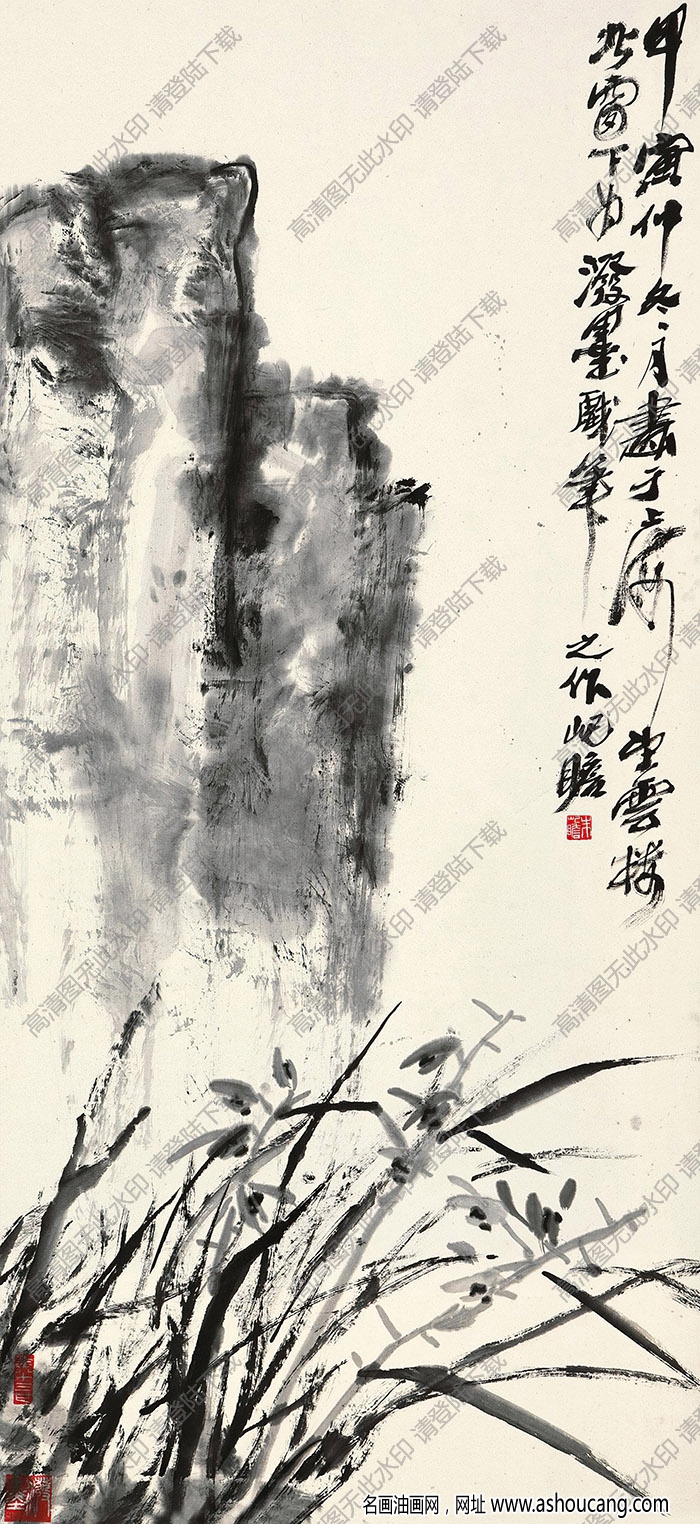 甲寅仲冬月畫于上海雲樓
北窗下為潑墨戲筆
之作屺瞻
高清图无此水印 请登陆下载
名画油画网，网址 www.ashoucang.com